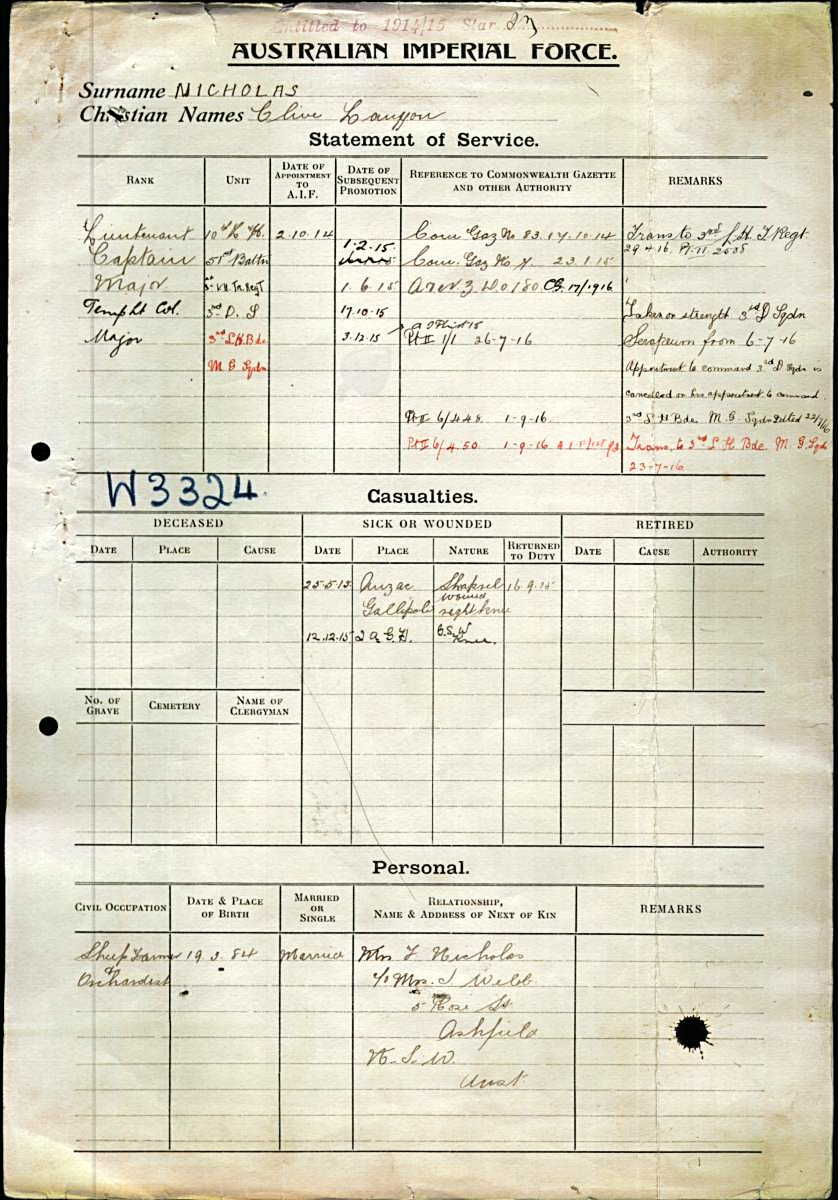 Entitled to 1914/15 Star
AUSTRALIAN IMPERIAL FORCE.
Surname NICHOLAS
Christian Names Clive
Statement of Service.
RANK
UNIT
DATE OF APPOINTMENT TO A.I.F.
DATE OF SUBSEQUENT PROMOTION
REFERENCE TO COMMONWEALTH GAZETTE AND OTHER AUTHORITY
REMARKS
Lieutenant 2.10.14 Com Gaz No 83. 17.10.14 Trans to 3rd L H T Regt
1.2.15. 29.4.16
Captain Com. Gaz No 23.1.15
Major 1.6.15 17/1916
Temp Lt Col. 3rd D. S 17.10.15 Taken on strength 3rd D Sqdn
Major 3rd L.H. Bde 3.12.15 Pt II 1/1 26-7-16 Serapeum from 6-7-16
M G Sqdn Appointment to command 3rd D Sqdn is
cancelled on his appointment to command
Pt II 6/448 1-9-16. 3rd L H Bde M. G. Sqdn
Pt II 6/450 1-9-16 Trans. to 3rd L H Bde M G Sqd
23-7-16
W3324.
Casualties.
DECEASED
SICK OR WOUNDED
RETIRED
DATE PLACE CAUSE DATE PLACE NATURE RETURNED TO DUTY DATE CAUSE AUTHORITY
25.5.15 Anzac Shrapnel 16.9.15
wound
Gallipoli right knee
12.12.15 2 A G H. G.S.W
Knee.
NO. OF GRAVE
CEMETERY
NAME OF CLERGYMAN
Personal.
CIVIL OCCUPATION
DATE & PLACE OF BIRTH
MARRIED OR SINGLE
RELATIONSHIP, NAME & ADDRESS OF NEXT OF KIN
REMARKS
Sheep Farmer 19.3.84 Married Mrs Nicholas
Orchardist c/o Mrs. J Webb
5 Rose St
Ashfield
N.S.W.
Aust